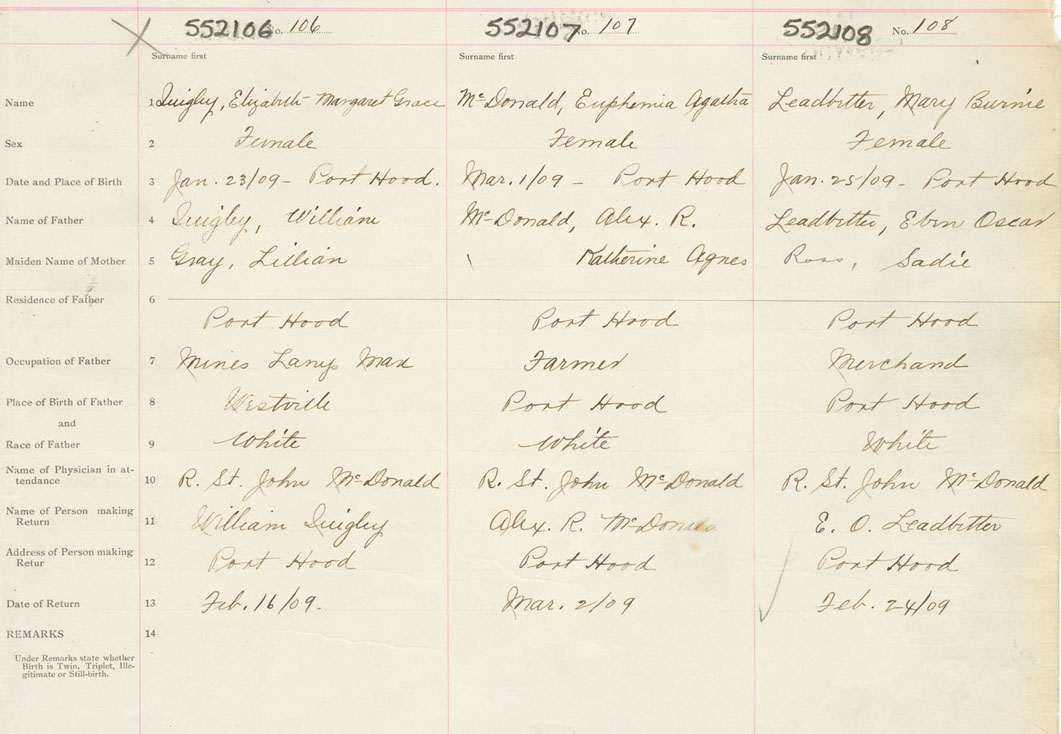 552106 No. 106 552107 No. 107 552108 No. 108
Surname first Surname first Surname first
Name 1 Quigley, Elizabeth Margaret Grace McDonald, Euphemia Agatha Leadbitter, Mary Burnie
Sex 2 Female Female Female
Date and Place of Birth 3 Jan. 23/09 - Port Hood. Mar. 1/09 - Port Hood Jan. 25/09 - Port Hood
Name of Father 4 Quigley, William McDonald, Alex. R. Leadbitter, Eben Oscar
Maiden Name of Mother 5 Gray, Lillian Katherine Agnes Ross, Sadie
Residence of Father 6
Port Hood Port Hood Port Hood
Occupation of Father 7 Mines Farmer Merchand
Place of Birth of Father 8 Westville Port Hood Port Hood
and
Race of Father 9 White White White
Name of Physician in at-
tendance 10 R. St. John McDonald R. St. John McDonald R. St. John McDonald
Name of Person making
Return 11 William Quigley Alex. R. McDonald E. O. Leadbitter
Address of Person making
Retur 12 Port Hood Port Hood Port Hood
Date of Return 13 Feb. 16/09. Mar. 2/09 Feb. 24/09
REMARKS 14
Under Remarks state whether
Birth is Twin, Triplet, Ille-
gitimate or Still-birth.